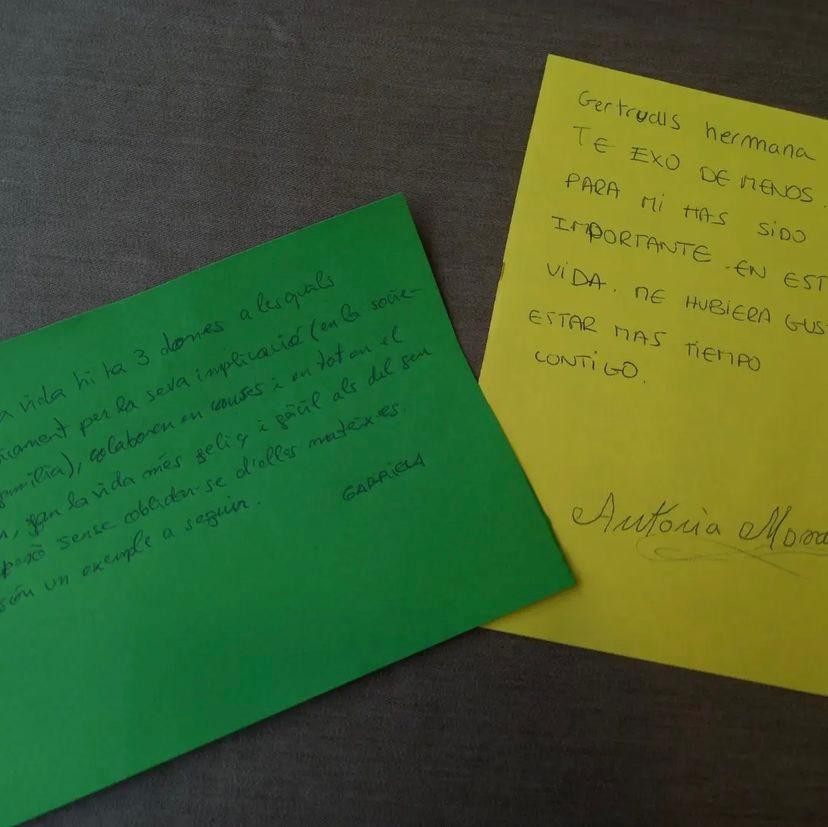 a vida hi ha 3 dones a les quals
ament per la seva implicació (en la socie-
família), colaboren en causes i en tot en el
n, fan la vida més feliç i fàcil als del seu
però sense oblidar-se d'elles mateixes.
són un exemple a seguir.
GABRIELA
Gertrudis hermana
TE EXO DE MENOS.
PARA MI HAS SIDO
IMPORTANTE EN EST
VIDA. ME HUBIERA GUS
ESTAR MAS TIEMPO
CONTIGO.
Antonia Mora